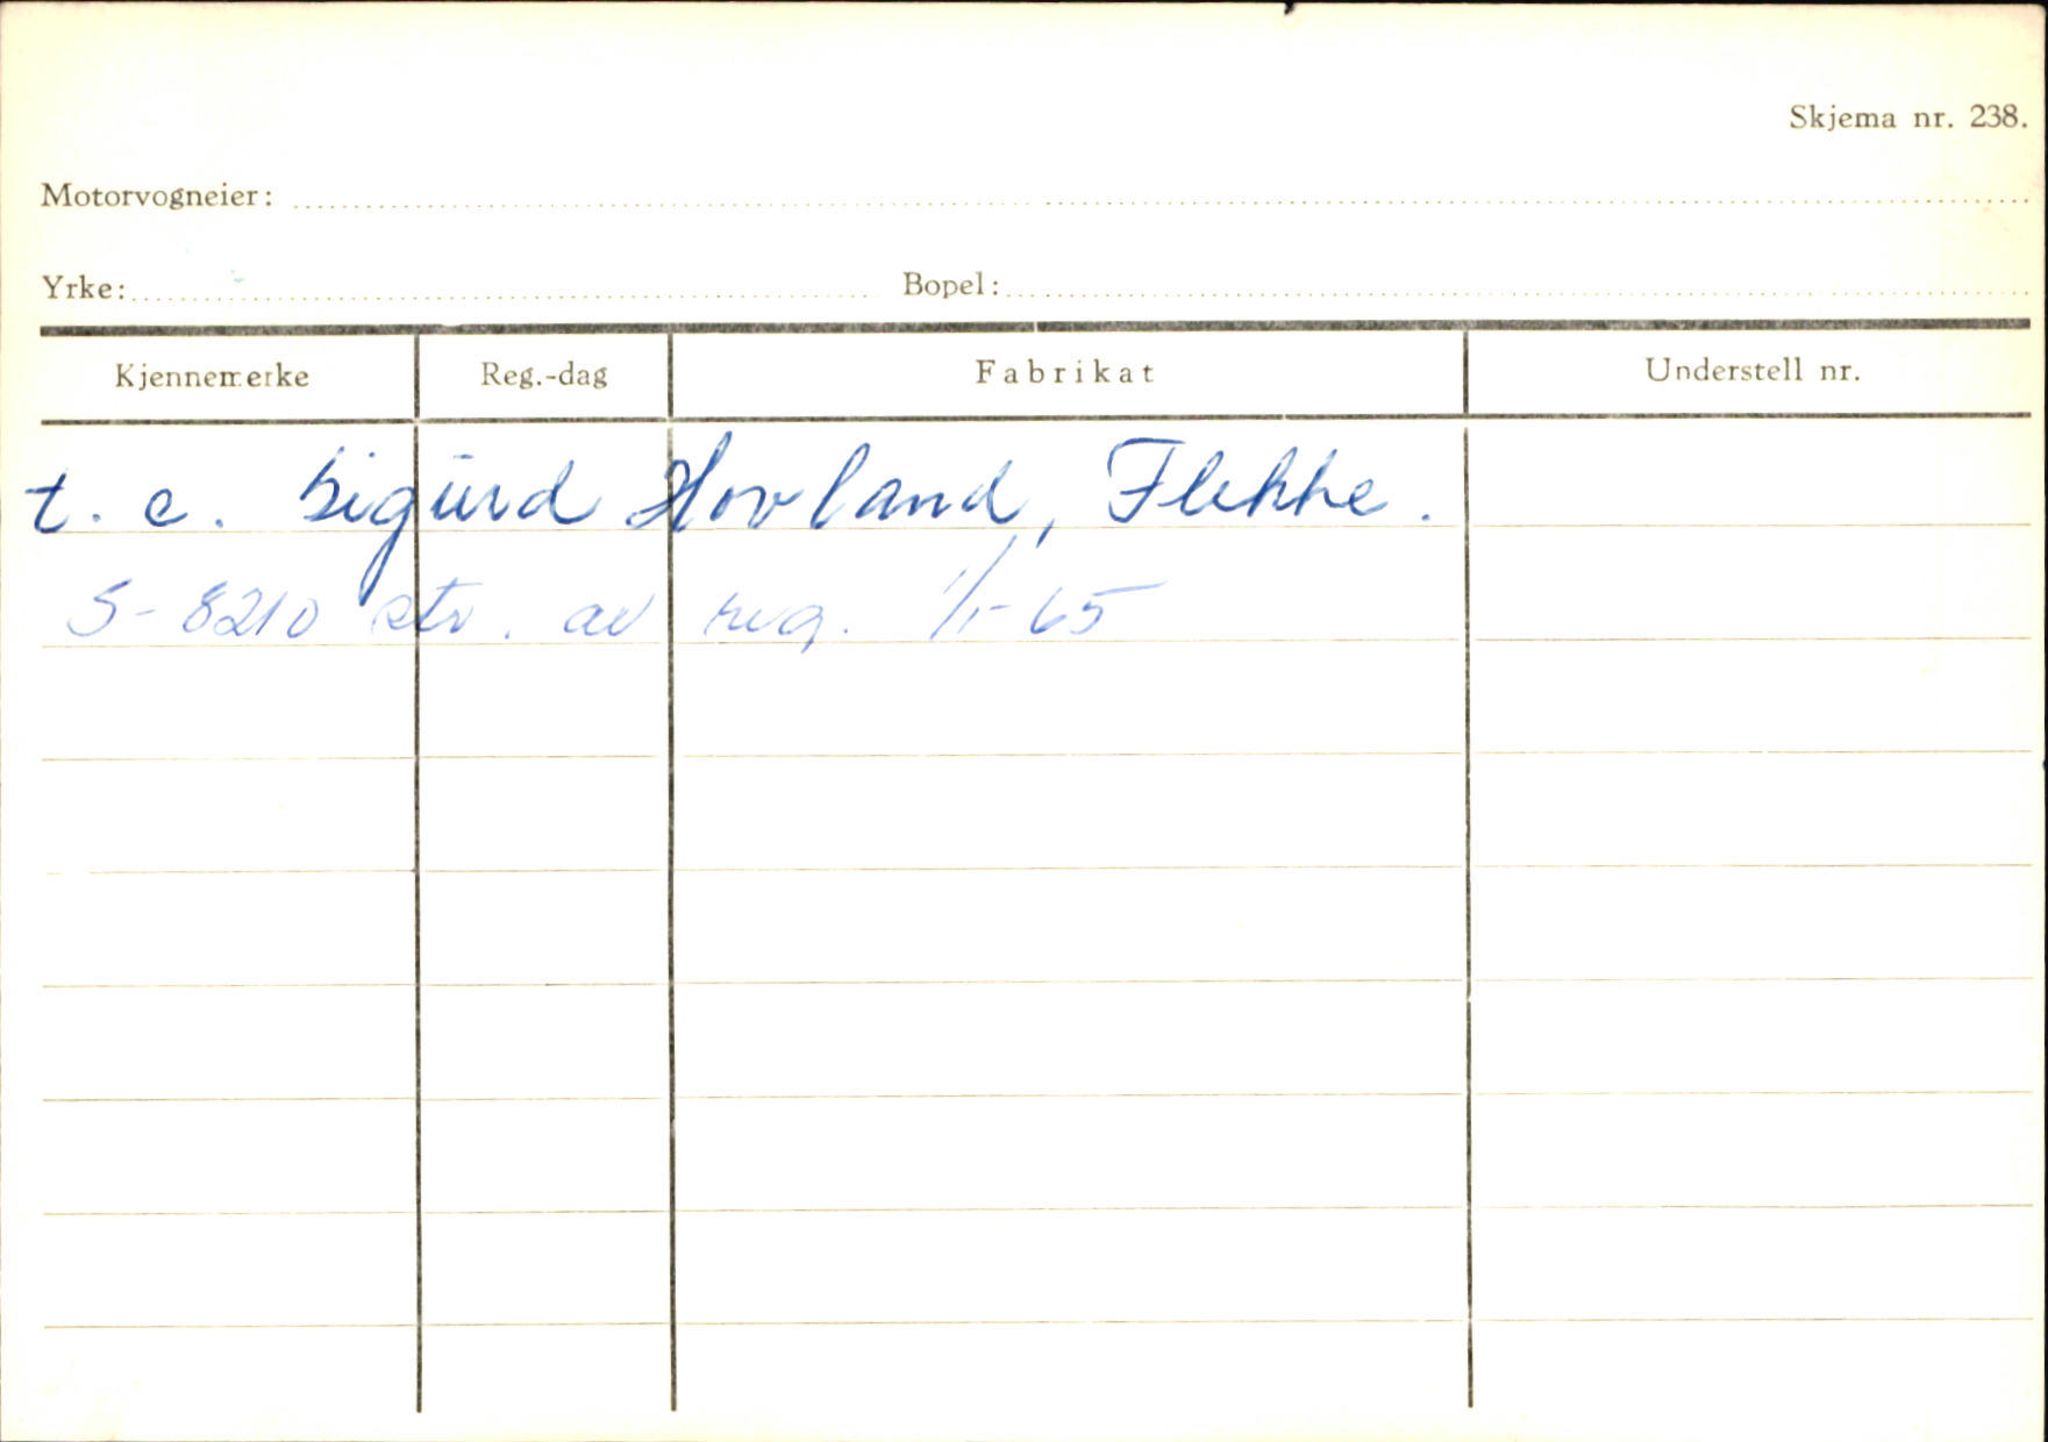 Skjema nr. 238.
Motorvogneier:
Yrke: Bopel:
Kjennemerke Reg.-dag Fabrikat Understell nr.
t. e. Sigurd Hovland, Flekke.
S-8210 str. av reg. 1/1-65